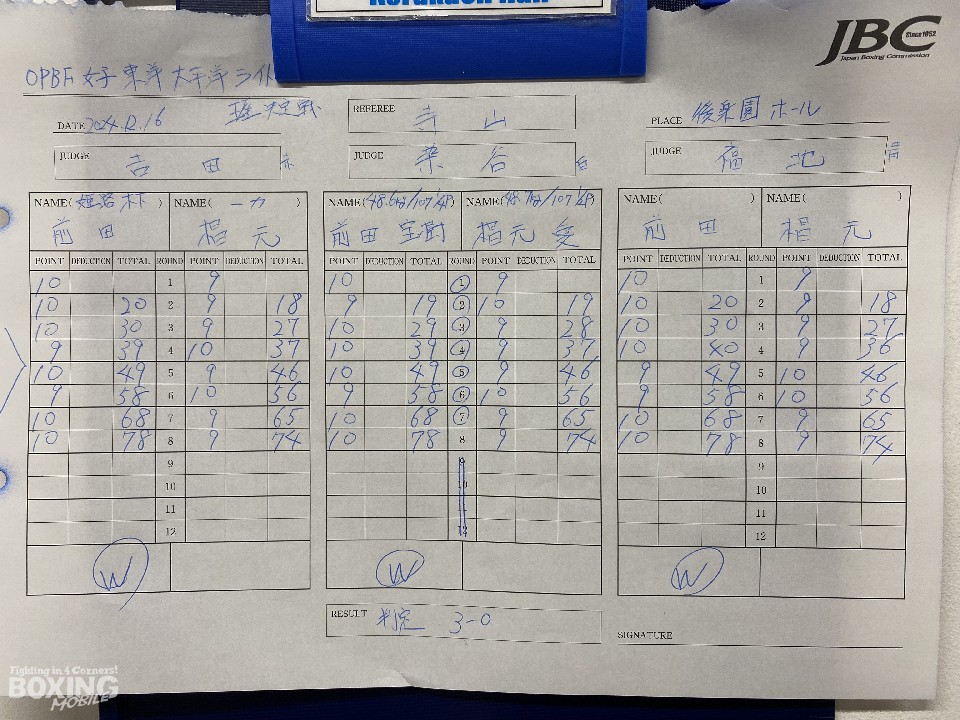 Korakuen Hall
JBC Since 1952
Japan Boxing Commission
OPBF女子東洋太平洋ライト
DATE 2024.12.16
REFEREE 寺山
PLACE 後楽園ホール
JUDGE 吉田 赤
JUDGE 染谷 白
JUDGE 福地 青
NAME( ) NAME(一力) NAME(48.6㎏/107 1/4P) NAME( ) NAME( ) NAME( )
前田 楢元 前田 宝尉 楢元 愛 前田 楢元
POINT DEDUCTION TOTAL ROUND POINT DEDUCTION TOTAL POINT DEDUCTION TOTAL ROUND POINT DEDUCTION TOTAL POINT DEDUCTION TOTAL ROUND POINT DEDUCTION TOTAL
10 1 9 10 1 9 10 1 9
10 20 2 9 18 9 19 2 10 19 10 20 2 9 18
10 30 3 9 27 10 29 3 9 28 10 30 3 9 27
9 39 4 10 37 10 39 4 9 37 10 40 4 9 36
10 49 5 9 46 10 49 5 9 46 9 49 5 10 46
9 58 6 10 56 9 58 6 10 56 9 58 6 10 56
10 68 7 9 65 10 68 7 9 65 10 68 7 9 65
10 78 8 9 74 10 78 8 9 74 10 78 8 9 74
9 9 9
10 10 10
11 11
12 12 12
W W W
RESULT 判定 3-0
SIGNATURE
Fighting in 4 Corners!
BOXING
MOBILE